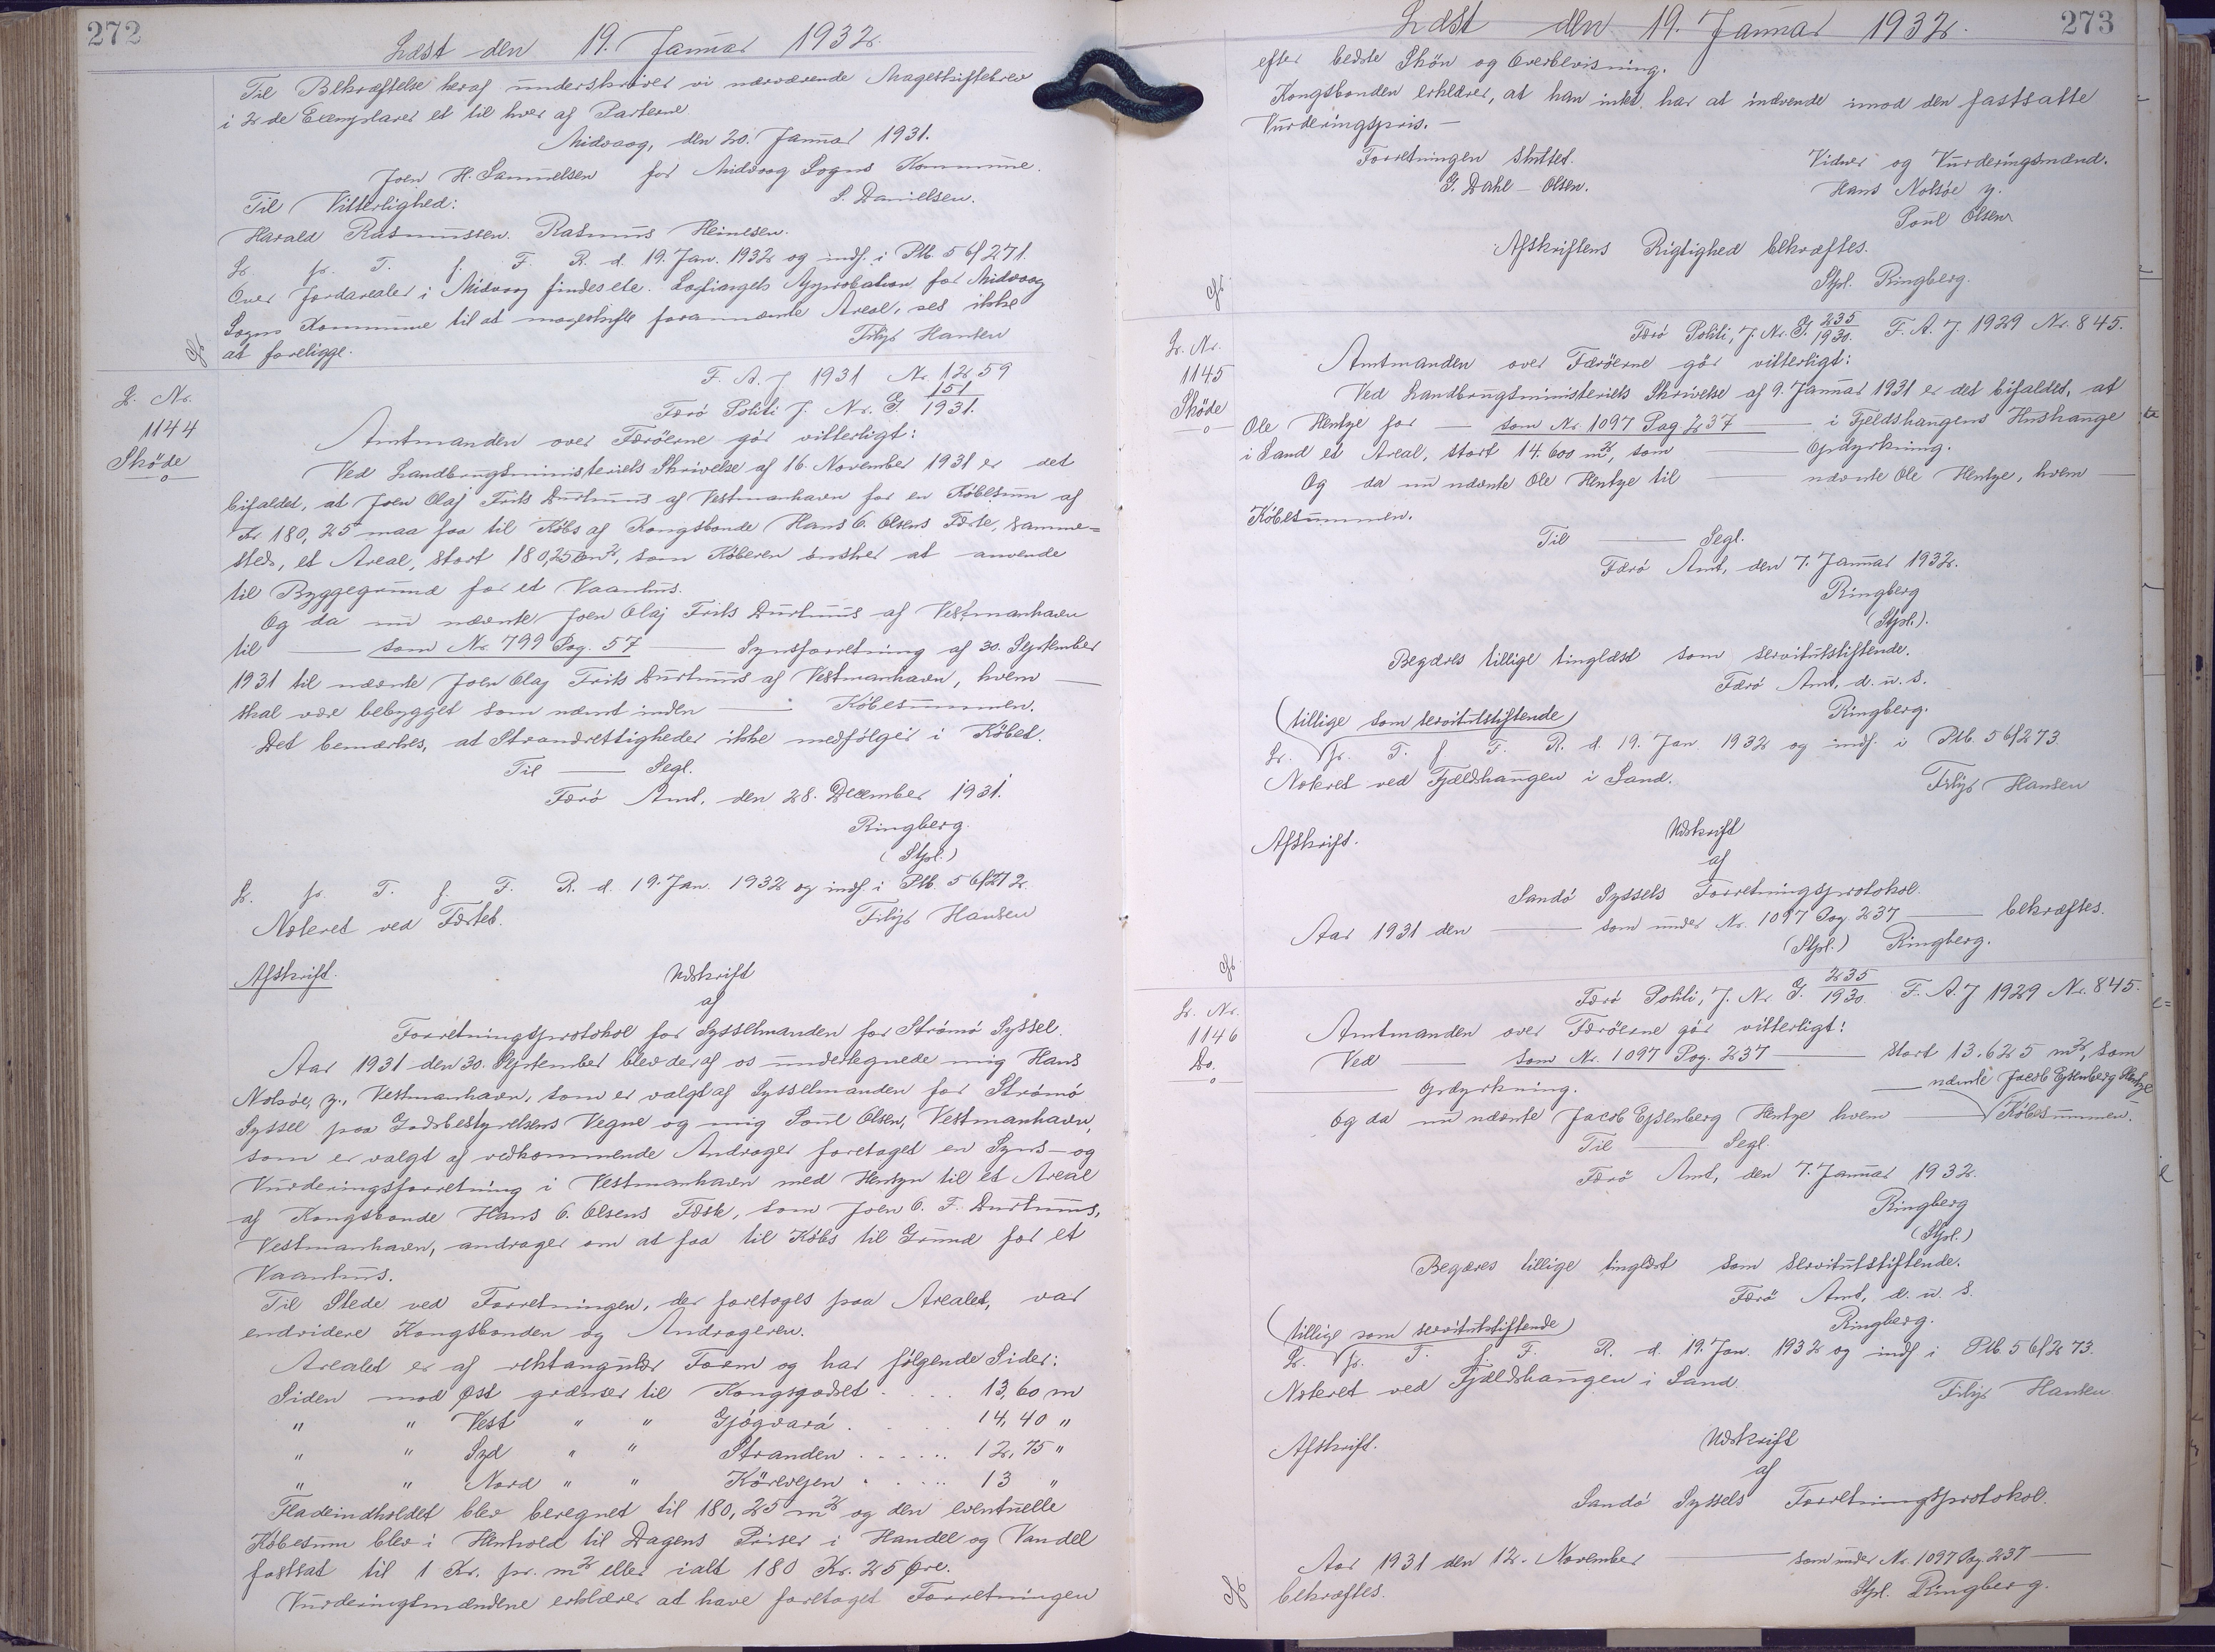 272
Læst den 19. Januar 1932.
Til Bekræftelse heraf underskriver vi nærværende Mageskiftebrev
i 2de Exemplarer et til hver af Parterne.
Midvaag, den 20. Januar 1931.
Joen H. Samuelsen for Midvaag Sogns Kommune.
Til Vitterlighed: S. Danielsen.
Harald Rasmussen. Rasmus Heinesen.
L. pr. T. f. F. R. d. 19. Jan. 1932 og indf. i Ptb. 56/271.
Over Jordarealer i Midvaag findes ete. Lagtingets Approbation for Midvaag
Sogns Kommune til at mageskifte forannævnte Areal, ses ikke
at foreligge. Filip Hansen
L. Nr.
1144
Skøde
F. A. J. 1931 Nr. 1259
Færø Politi J. Nr. G. 151/1931.
Amtmanden over Færøerne gør vitterligt:
Ved Landbrugsministeriets Skrivelse af 16. November 1931 er det
bifaldet, at Joen Olaj Frits Durhuus af Vestmanhavn for en Købesum af
Kr. 180,25 maa faa til Købs af Kongsbonde Hans O. Olsens Fæste, samme=
steds, et Areal, stort 180,25 m², som Køberen ønsker at anvende
til Byggegrund for et Vaanhus.
Og da nu nævnte Joen Olaj Frits Durhuus af Vestmanhavn
til — som Nr. 799 Pag. 57 — Synsforretning af 30. September
1931 til nævnte Joen Olaj Frits Durhuus af Vestmanhavn, hvem —
skal være bebygget som nævnt inden — Købesummen.
Det bemærkes, at Strandrettigheder ikke medfølger i Købet.
Til — Segl.
Færø Amt, den 28. December 1931.
Ringberg.
(Stpl.)
L. pr. T. f. F. R. d. 19. Jan. 1932 og indf. i Ptb. 56/272.
Noteret ved Fæsteb. Filip Hansen
Afskrift. Udskrift
af
Forretningsprotokol for Sysselmanden for Strømø Syssel.
Aar 1931 den 30. September blev der af os undertegnede mig Hans
Nolsøe, y., Vestmanhavn, som er valgt af Sysselmanden for Strømø
Syssel paa Godsbestyrelsens Vegne og mig Poul Olsen, Vestmanhavn,
som er valgt af vedkommende Andrager foretaget en Syns- og
Vurderingsforretning i Vestmanhavn med Hensyn til et Areal
af Kongsbonde Hans O. Olsens Fæste, som Joen O. F. Durhuus,
Vestmanhavn, andrager om at faa til Købs til Grund for et
Vaanhus.
Til Stede ved Forretningen, der foretoges paa Arealet, var
endvidere Kongsbonden og Andrageren.
Arealet er af rektangulær Form og har følgende Sider:
Siden mod Øst grænser til Kongsgodset . . . . 13,60 m
" " Vest " " Gjógvará . . . . 14,40 "
" " Syd " " Stranden . . . . . . 12,75 "
" " Nord " " Kørevejen . . . . 13 "
Fladeindholdet blev beregnet til 180,25 m² og den eventuelle
Købesum blev i Henhold til Dagens Priser i Handel og Vandel
fastsat til 1 Kr. pr. m² eller ialt 180 Kr. 25 Øre.
Vurderingsmændene erklærer at have foretaget Forretningen
273
Læst den 19. Januar 1932.
efter bedste Skøn og Overbevisning.
Kongsbonden erklærer, at han intet har at indvende imod den fastsatte
Vurderingspris. —
Forretningen sluttet. Vidner og Vurderingsmænd.
G. Dahl-Olsen. Hans Nolsøe y.
Poul Olsen
Afskriftens Rigtighed bekræftes.
Stpl. Ringberg.
L. Nr.
1145
Skøde
Færø Politi, J. Nr. G. 235/1930. F. A. J. 1929 Nr. 845.
Amtmanden over Færøerne gør vitterligt:
Ved Landbrugsministeriets Skrivelse af 9. Januar 1931 er det bifaldet, at
Ole Hentze for — som Nr 1097 Pag. 237 — i Fjeldshaugens Hushauge
i Sand et Areal, stort 14.600 m², som — Opdyrkning.
Og da nu nævnte Ole Hentze til — nævnte Ole Hentze, hvem —
Købesummen.
Til — Segl.
Færø Amt, den 7. Januar 1932.
Ringberg
(Stpl.).
Begæres tillige tinglæst som servitutstiftende.
Færø Amt, d. u. s.
Ringberg.
(tillige som servitutstiftende)
L. pr. T. f. F. R. d. 19. Jan. 1932 og indf. i Ptb. 56/273.
Noteret ved Fjældshaugen i Sand. Filip Hansen
Afskrift. Udskrift
af
Sandø Syssels Forretningsprotokol.
Aar 1931 den — som under Nr. 1097 Pag. 237 — bekræftes.
(Stpl.) Ringberg.
L. Nr.
1146
Do.
Færø Politi, J. Nr. G. 235/1930 F. A. J. 1929 Nr. 845.
Amtmanden over Færøerne gør vitterligt:
Ved — som Nr. 1097 Pag. 237 — stort 13.625 m², som
— Opdyrkning. — nævnte Jacob Ejsenberg Hentze
Og da nu nævnte Jacob Ejsenberg Hentze hvem — Købesummen.
Til — Segl.
Færø Amt, den 7. Januar 1932.
Ringberg
(Stpl.)
Begæres tillige tinglæst som servitutstiftende.
Færø Amt, d. u. s.
Ringberg.
(tillige som servitutstiftende)
L. pr. T. f. F. R. d. 19. Jan. 1932 og indf. i Ptb. 56/273.
Noteret ved Fjældshaugen i Sand. Filip Hansen
Afskrift. Udskrift
af
Sandø Syssels Forretningsprotokol.
Aar 1931 den 12. November — som under Nr. 1097 Pag. 237 —
bekræftes. Stpl. Ringberg.